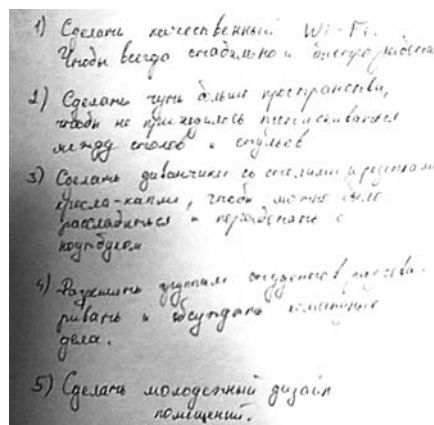 1) Сделать качественный Wi-Fi.
Чтобы всегда стабильно и быстро работал
2) Сделать чуть больше пространства,
чтобы не приходилось протискиваться
между столов и стульев
3) Сделать диванчики со столами и
кресла-капли, чтобы можно было
расслабиться и поработать с
ноутбуком
4) Разрешить группам студентов разгова-
ривать и обсуждать
дела.
5) Сделать молодежный дизайн
помещений.